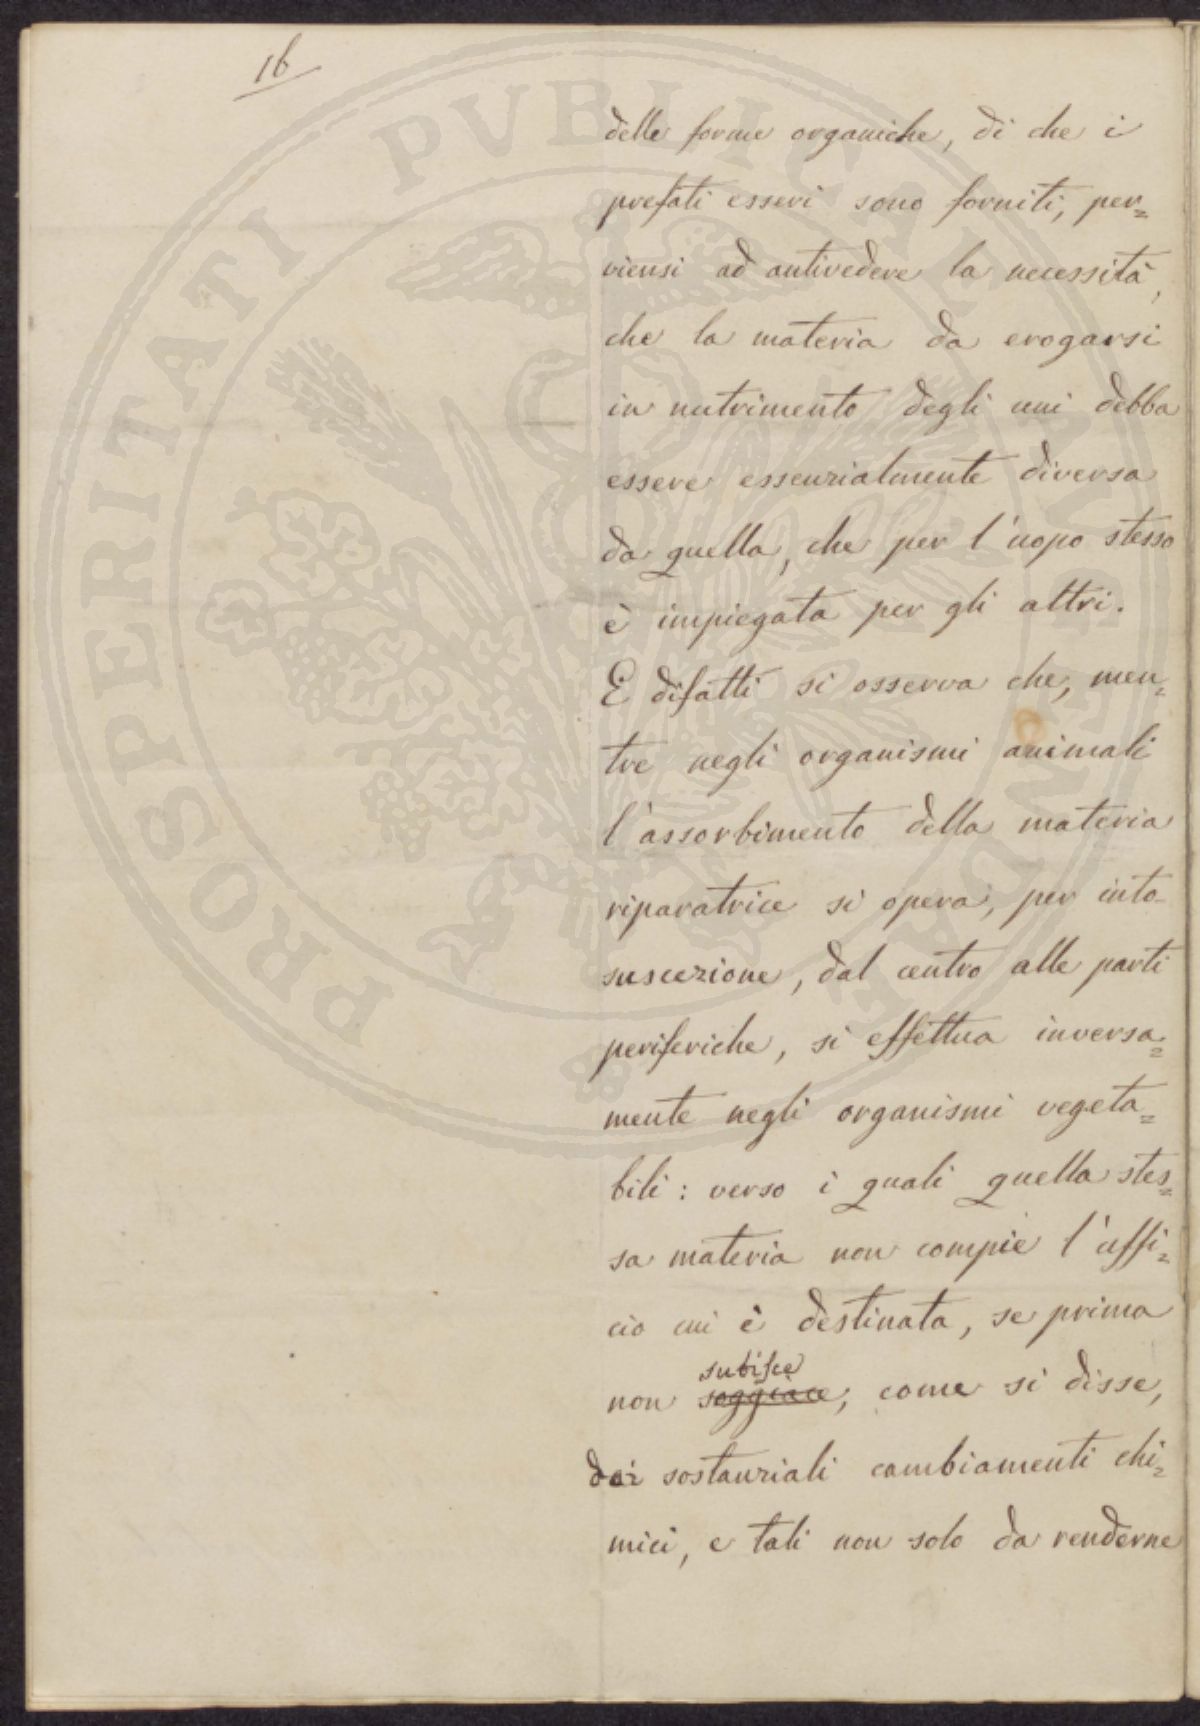 16
delle forme organiche, di che i
prefati esseri sono forniti, per=
viensi ad antivedere la necessità,
che la materia da erogarsi
in nutrimento degli uni debba
essere essenzialmente diversa
da quella, che per l'uopo stesso
è impiegata per gli altri.
E difatti si osserva che, men=
tre negli organismi animali
l'assorbimento della materia
riparatrice si opera, per into-
suscezione, dal centro alle parti
periferiche, si effettua inversa=
mente negli organismi vegeta=
bili: verso i quali quella stes=
sa materia non compie l'uffi=
cio cui è destinata, se prima
subisce
non soggiace, come si disse,
dei sostanziali cambiamenti chi=
mici, e tali non solo da renderne
PROSPERITATI PVBLICAE AVGENDAE